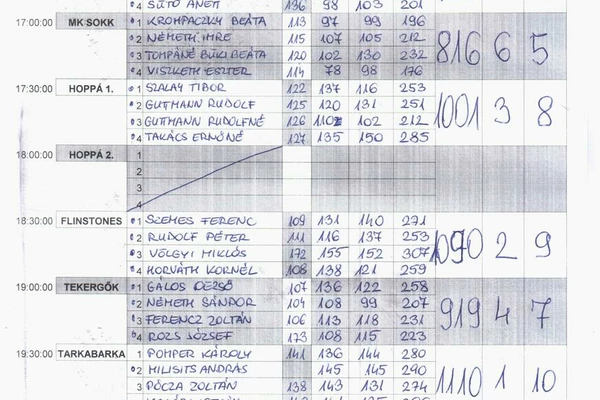 4 SÜTŐ ANETT 136 98 103 201
17:00:00 MK SOKK 1 KROMPACZKY BEÁTA 113 97 99 196
2 NÉMETH IMRE 115 107 105 212 816 6 5
3 TOMPÁNÉ BÜKI BEÁTA 120 102 130 232
4 VISZKETH ESZTER 114 78 98 176
17:30:00 HOPPÁ 1. 1 SZALAY TIBOR 122 137 116 253
2 GUTMANN RUDOLF 125 120 131 251 1001 3 8
3 GUTMANN RUDOLFNÉ 126 110 102 212
4 TAKÁCS ERNŐNÉ 127 135 150 285
18:00:00 HOPPÁ 2. 1
2
3
4
18:30:00 FLINSTONES 1 SZEMES FERENC 109 131 140 271
2 RUDOLF PÉTER 111 116 137 253 1090 2 9
3 VÖLGYI MIKLÓS 172 155 152 307
4 HORVÁTH KORNÉL 108 138 121 259
19:00:00 TEKERGŐK 1 GÁLOS DEZSŐ 107 136 122 258
2 NÉMETH SÁNDOR 104 108 99 207 919 4 7
3 FERENCZ ZOLTÁN 106 113 118 231
4 ROZS JÓZSEF 173 108 115 223
19:30:00 TARKABARKA 1 POMPER KÁROLY 141 136 144 280
2 MILISITS ANDRÁS 145 145 290 1110 1 10
3 PÓCZA ZOLTÁN 138 143 131 274